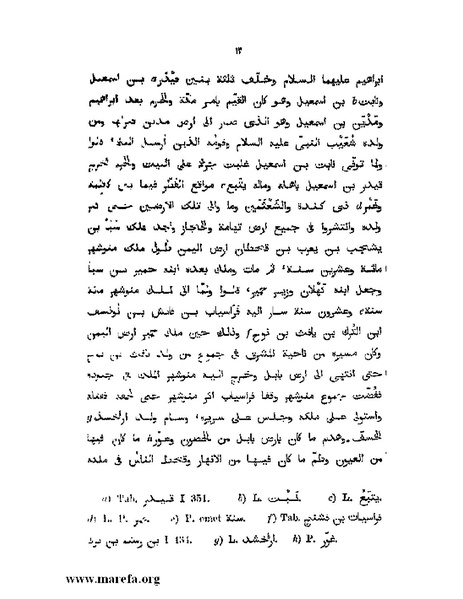 ١٣
ابراهيم عليهما السلام وخلّف ثلثة بنين قيذر بن اسمعيل
ونابت بن اسمعيل وهو كان القيّم بامر مكّة والحرم بعد ابراهيم
ومَدْيَن بن اسمعيل وهو الذى صار الى ارض مدين ومن
ولده شُعَيْب النبىّ عليه السلام وقومه الذين ارسل
ولما توفّى نابت بن اسمعيل غلبت على البيت والحرم
قيدر بن اسمعيل باهله وماله يتّبع مواقع القطر فيما بين كاظمة
ذى كندة والشَعْثَمَيْن وما والى تلك الارضين حتى
ولده وانتشروا فى جميع ارض تهامة والحجاز ملك سَبَأ بن
يشجب بن يعرب بن قحطان ارض اليمن ملك منوشهر
مائة وعشرين سنة ثم مات وملك بعده ابنه حمير بن سبأ
وجعل ابنه كَهْلان وزير حمير قالوا ولمّا اتى لملك منوشهر مئة
سنة وعشرون سنة سار اليه فراسياب بن
ابن التُرك بن يافث بن نوح وذلك حين ملك حمير ارض اليمن
وكان مسيره من ناحية المشرق فى جموع من ولد يافث بن نوح
حتى انتهى الى ارض بابل وخرج اليه منوشهر الملك فى جنوده
جموع منوشهر وقفا فراسياب اثر منوشهر حتى لحقه فقتله
واستولى على ملكه وجلس على سريره وسام ولد ارفخشد
الخسف وهدم ما كان بارض بابل من الحصون وعوّر ما كان فيها
من العيون وطمّ ما كان فيها من الانهار وقحط الناس فى ملكه
a) Tab. قيدر I 351. b) L. c) L. يتبَعُ.
d) L. P. e) P. omet سنة. f) Tab. فراسيات بن
بن رستم بن ترك I 434. g) L. ارفخشد. h) P. غوّر.
www.marefa.org